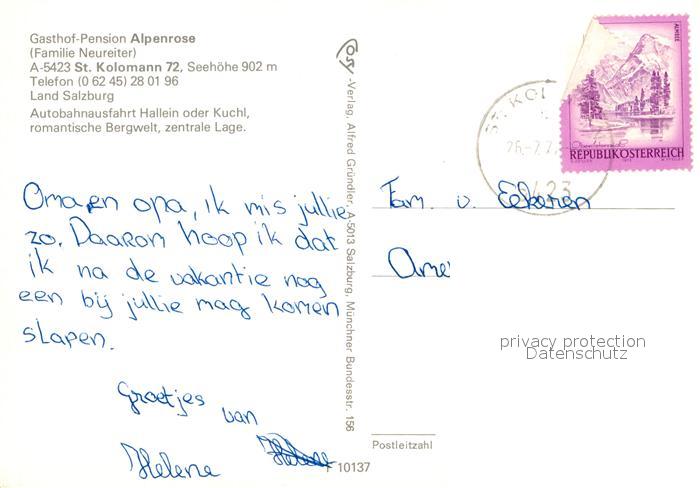 Gasthof-Pension Alpenrose
(Familie Neureiter)
A-5423 St. Kolomann 72, Seehöhe 902 m
Telefon (0 62 45) 28 01 96
Land Salzburg
Autobahnausfahrt Hallein oder Kuchl,
romantische Bergwelt, zentrale Lage.
Oma en opa, ik mis jullie
zo. Daarom hoop ik dat
ik na de vakantie nog
een bij jullie mag komen
slapen.
Groetjes
van
Helene
Helene
-Verlag, Alfred Gründler, A-5013 Salzburg, Münchner Bundesstr. 156
10137
ALMSEE
REPUBLIK ÖSTERREICH
ST. KOL
26.-7.7
5423
Fam. v. Eekeren
privacy protection
Datenschutz
Postleitzahl